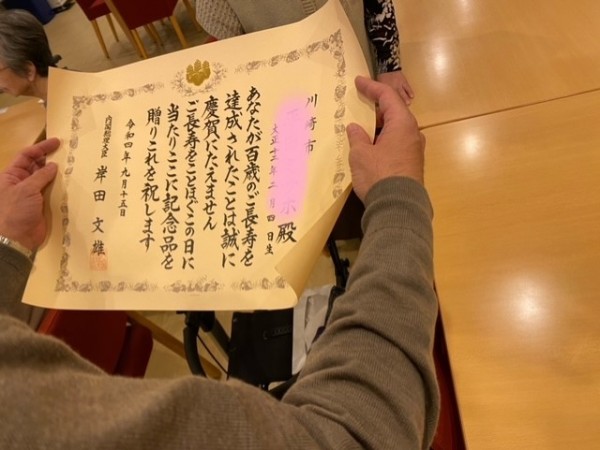 川崎市
殿
大正十二年二月四日生
あなたが百歳のご長寿を
達成されたことは誠に
慶賀にたえません
ご長寿をことほぐこの日に
当たりここに記念品を
贈りこれを祝します
令和四年九月十五日
内閣総理大臣 岸田文雄